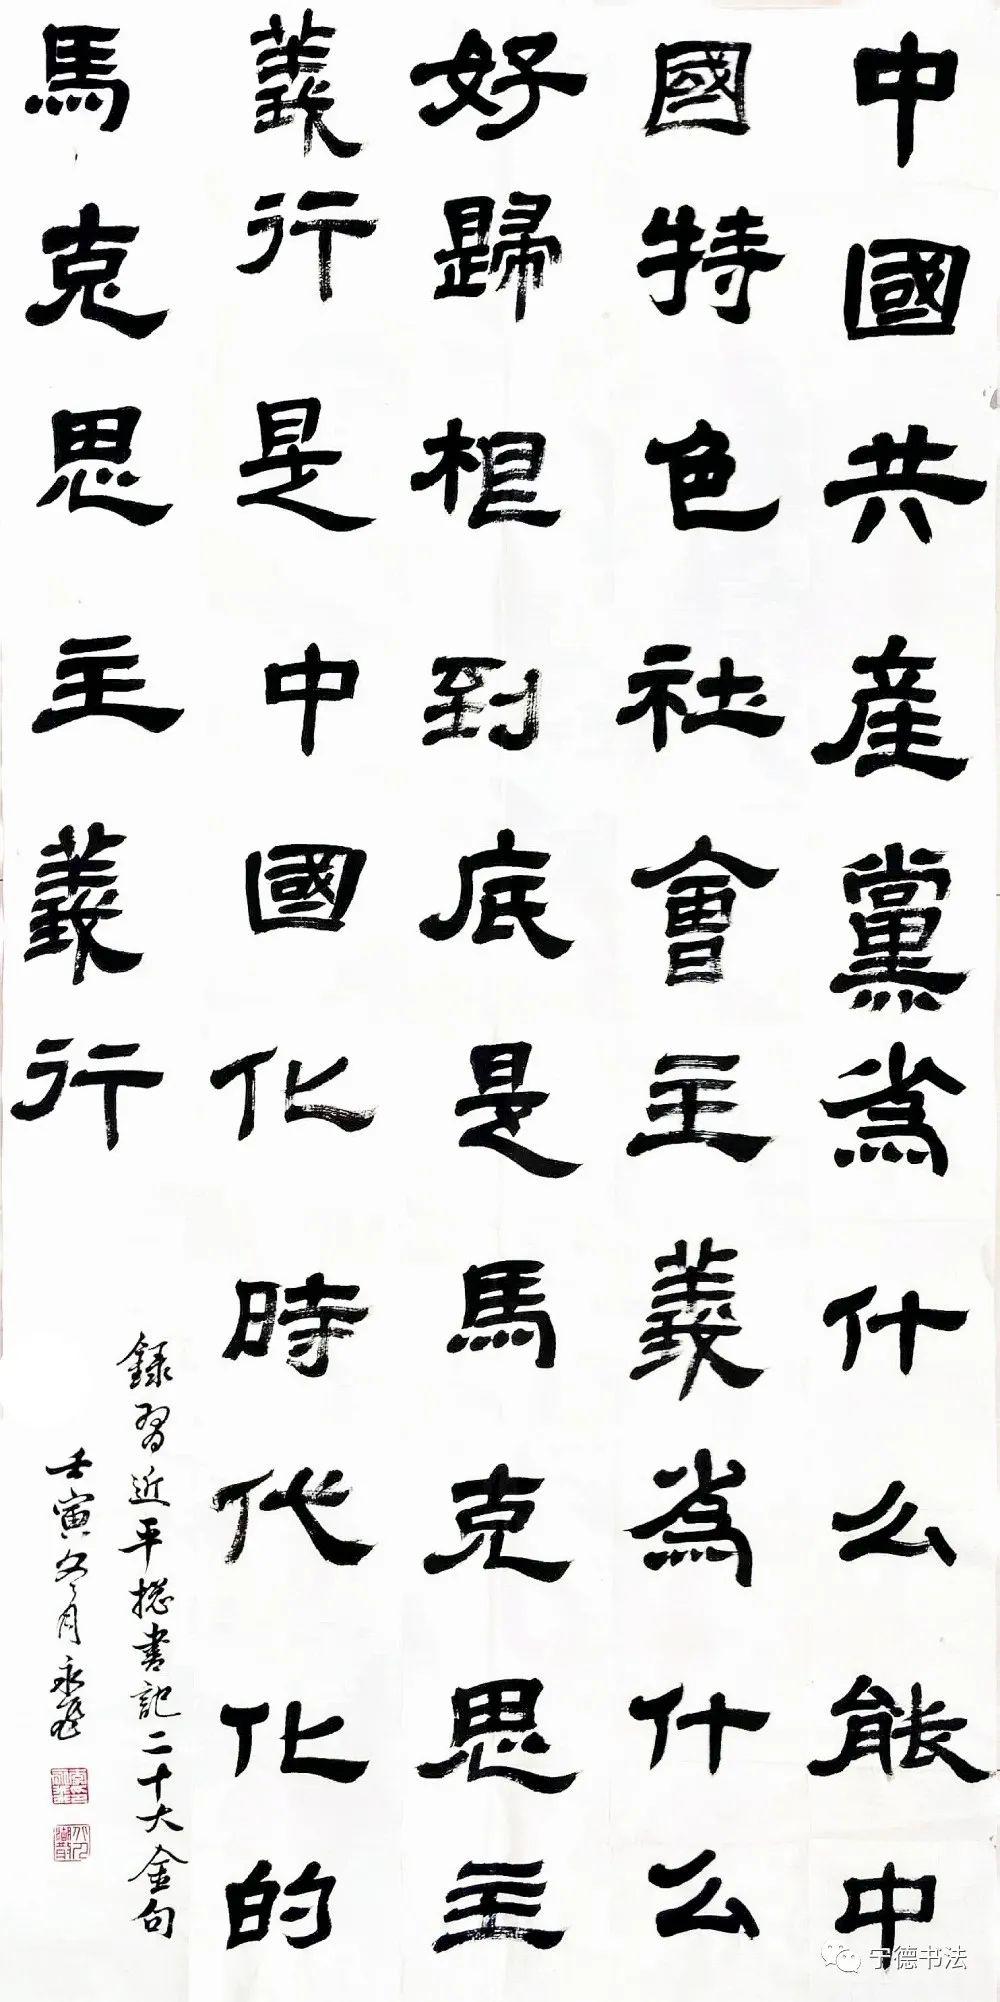 中國共產黨為什么能中
國特色社會主義為什么
好歸根到底是馬克思主
義行是中國化時代化的
馬克思主義行
録習近平總書記二十大金句
壬寅冬月永飛
宁德书法